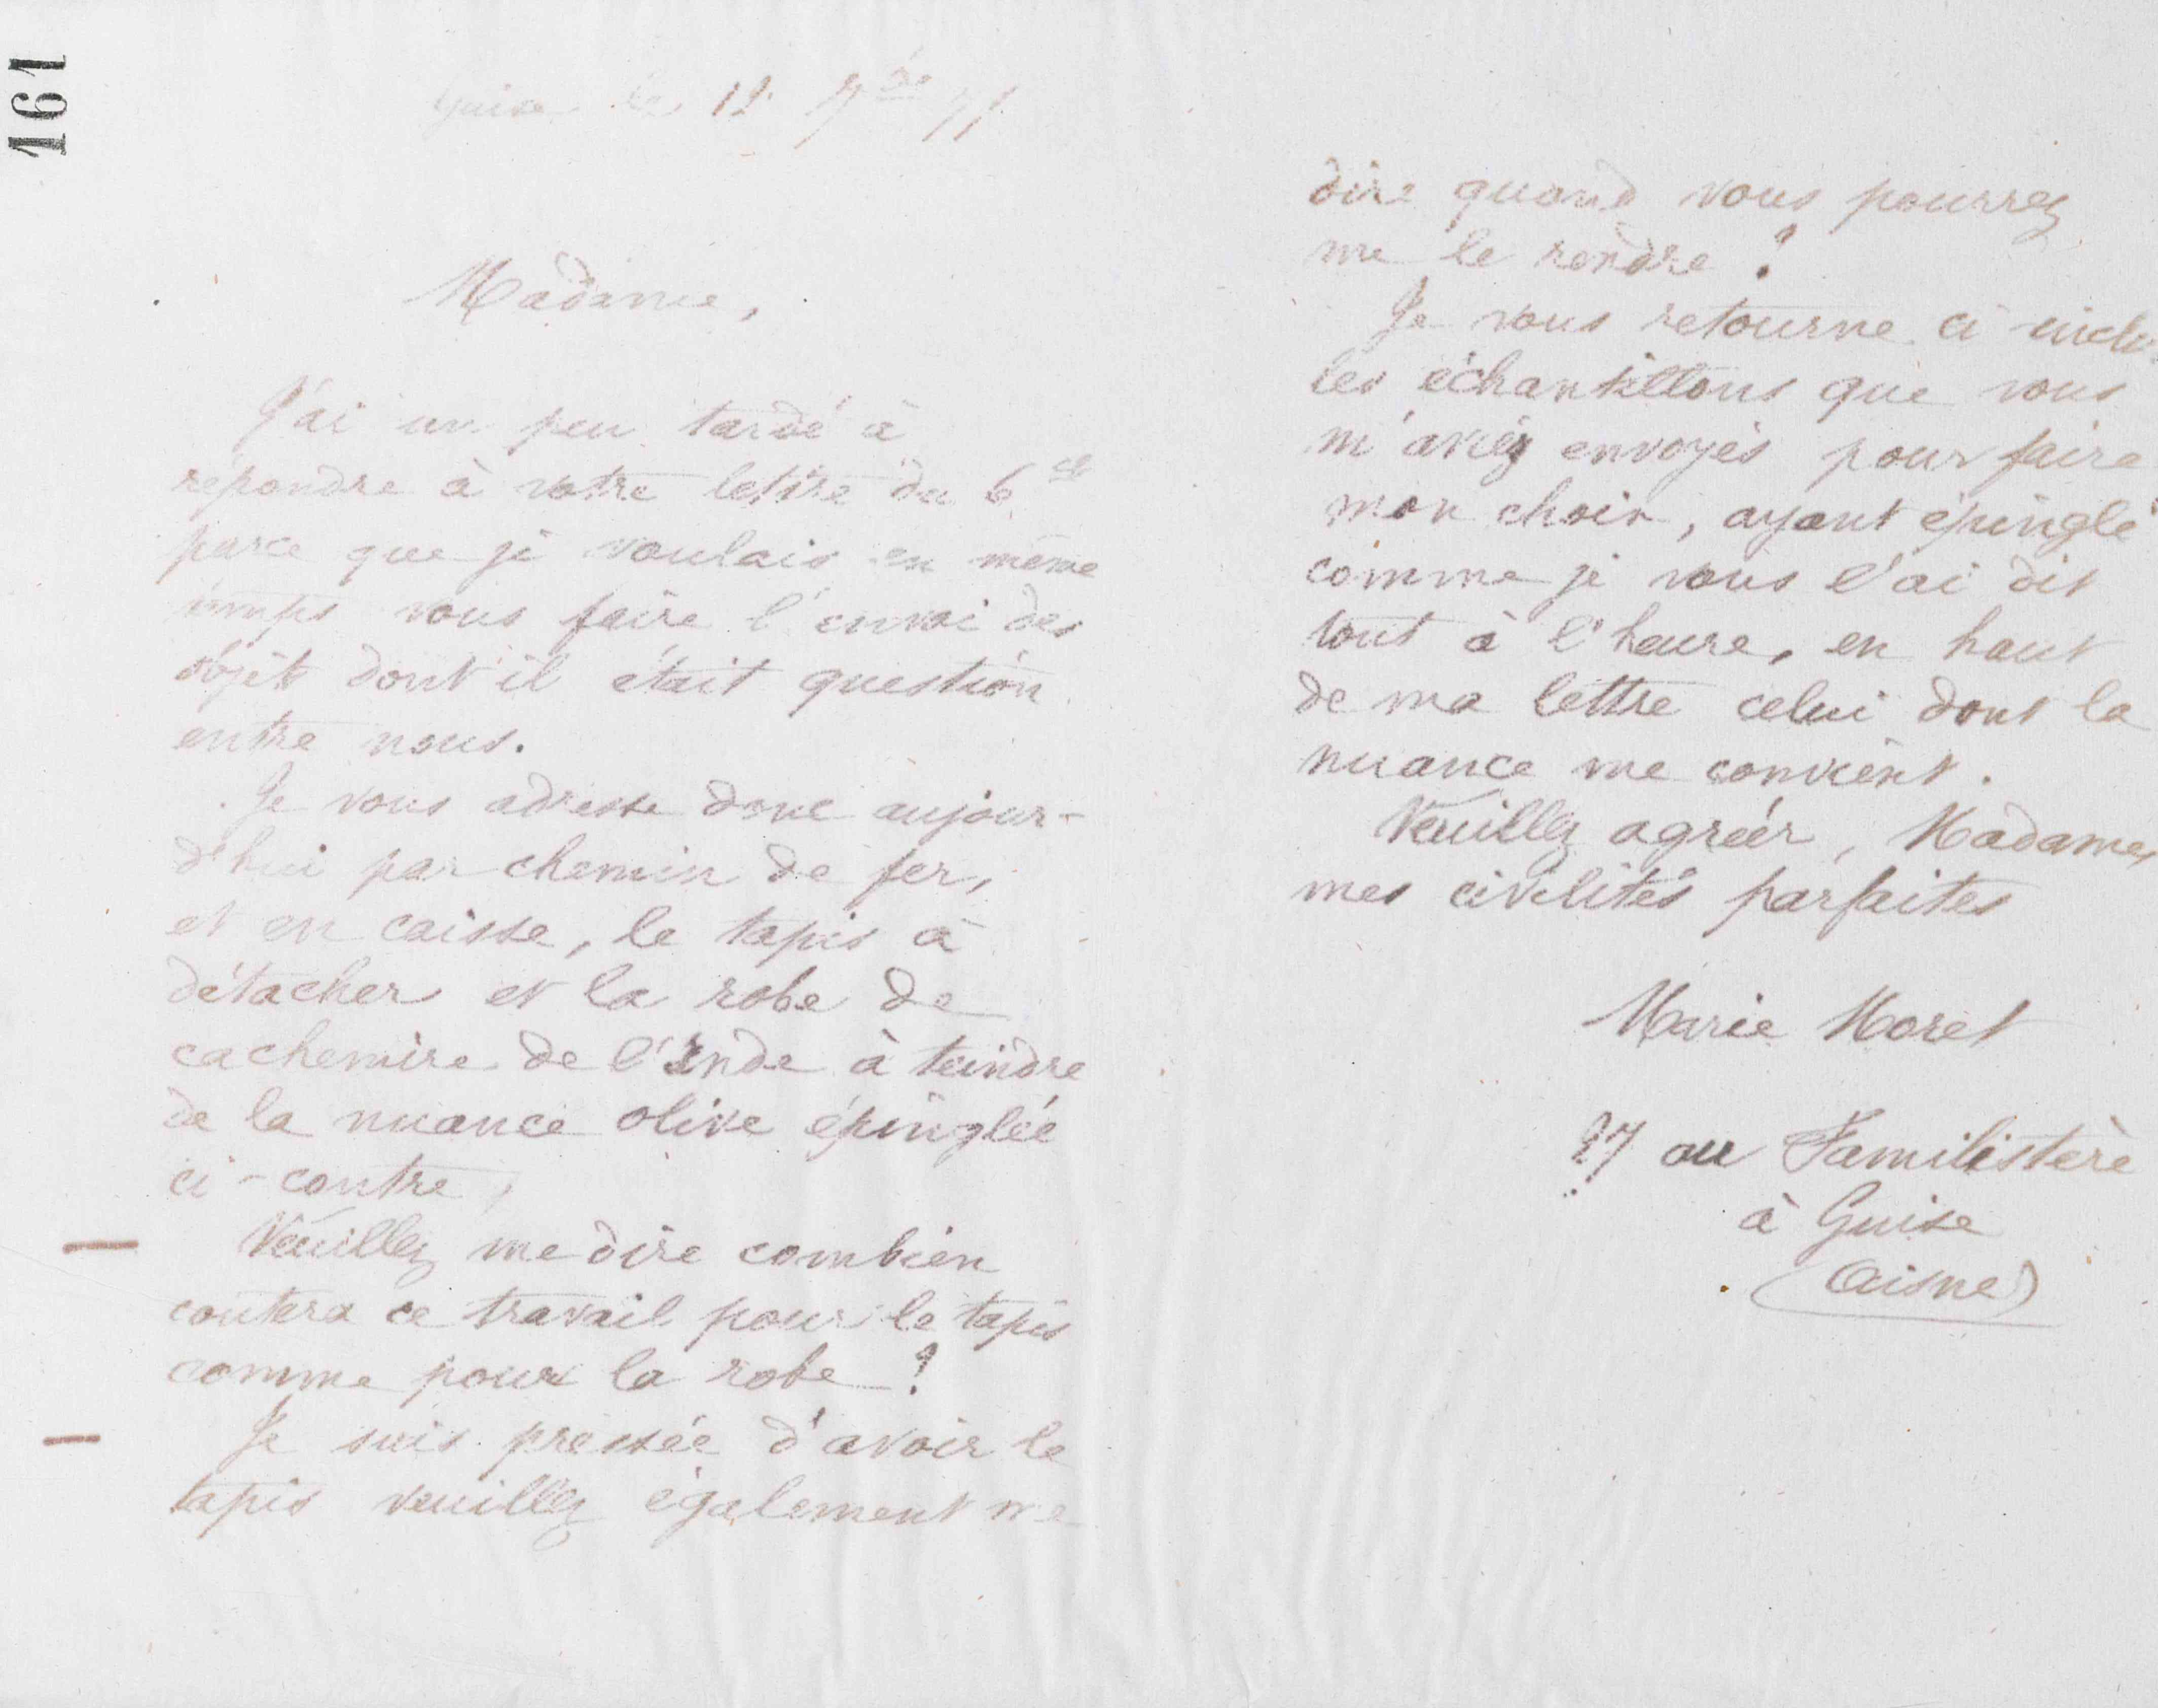 161
Guise le 12 7bre 91
Madame,
J'ai un peu tardé à
répondre à votre lettre du 6 ct
parce que je voulais en même
temps vous faire l'envoi des
objets dont il était question
entre nous.
Je vous adresse donc aujour-
d'hui par chemin de fer,
et en caisse, le tapis à
détacher et la robe de
cachemire de l'Inde à teindre
de la nuance olive épinglée
ci-contre,
Veuillez me dire combien
coutera ce travail pour le tapis
comme pour la robe ?
Je suis pressée d'avoir le
tapis veuillez également me
dire quand vous pourrez
me le rendre ?
Je vous retourne ci inclus
les échantillons que vous
m'aviez envoyés pour faire
mon choix, ayant épinglé
comme je vous l'ai dit
tout à l'heure, en haut
de ma lettre celui dont la
nuance me convient.
Veuillez agréer, Madame,
mes civilités parfaites
Marie Moret
27 au Familistère
à Guise
(Aisne)